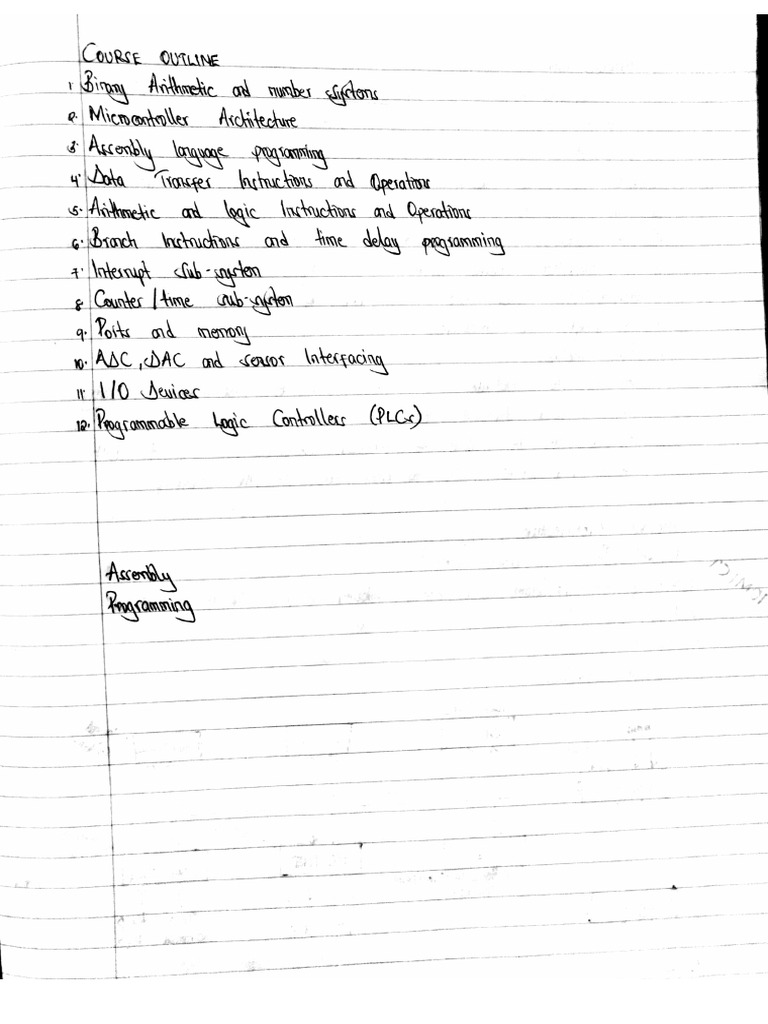 COURSE OUTLINE
1. Binary Arithmetic and number systems
2. Microcontroller Architecture
3. Assembly language programming
4. Data Transfer Instructions and Operations
5. Arithmetic and Logic Instructions and Operations
6. Branch Instructions and time delay programming
7. Interrupt sub-system
8 Counter/time sub-system
9. Ports and memory
10. ADC, DAC and sensor Interfacing
11. I/O Devices
12. Programmable Logic Controllers (PLCs)
Assembly
Programming